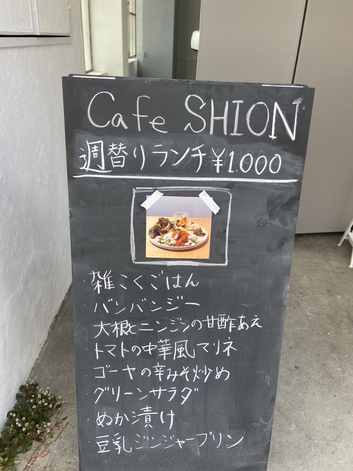 Cafe SHION
週替りランチ¥1.000
雑こくごはん
バンバンジー
大根とニンジンの甘酢あえ
トマトの中華風マリネ
ゴーヤの辛みそ炒め
グリーンサラダ
ぬか漬け
豆乳ジンジャープリン